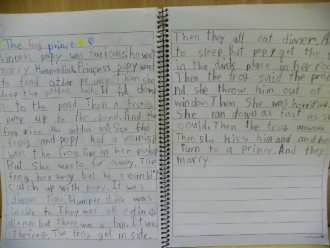 The frog prince
Princess popy was
marry Humperdink. Princess popy want
to find other prince. Then she
drop the golden ball. It fall down
to the pond. Then a frog
pump up to the pond. And the
frog the golden ball. So the
frog and popy had a promise
was the frog live in her palace
But. She was far away. The
frog hop away but he couldn't
catch up with popy. It was
dinner time. Humperdink was
inside to. They was all eating
dinner but there was a tap in side
The frog. The frog got in side.
Then they all eat dinner. And
to sleep. But popy got the
in the dark place in her r
Then the frog said the pro
nd she threw him out of
window. Then. She was horrified
She ran down as fast as s
could. Then the frog answer
Then she kiss him and and he
turn to a prince. And they
marry.